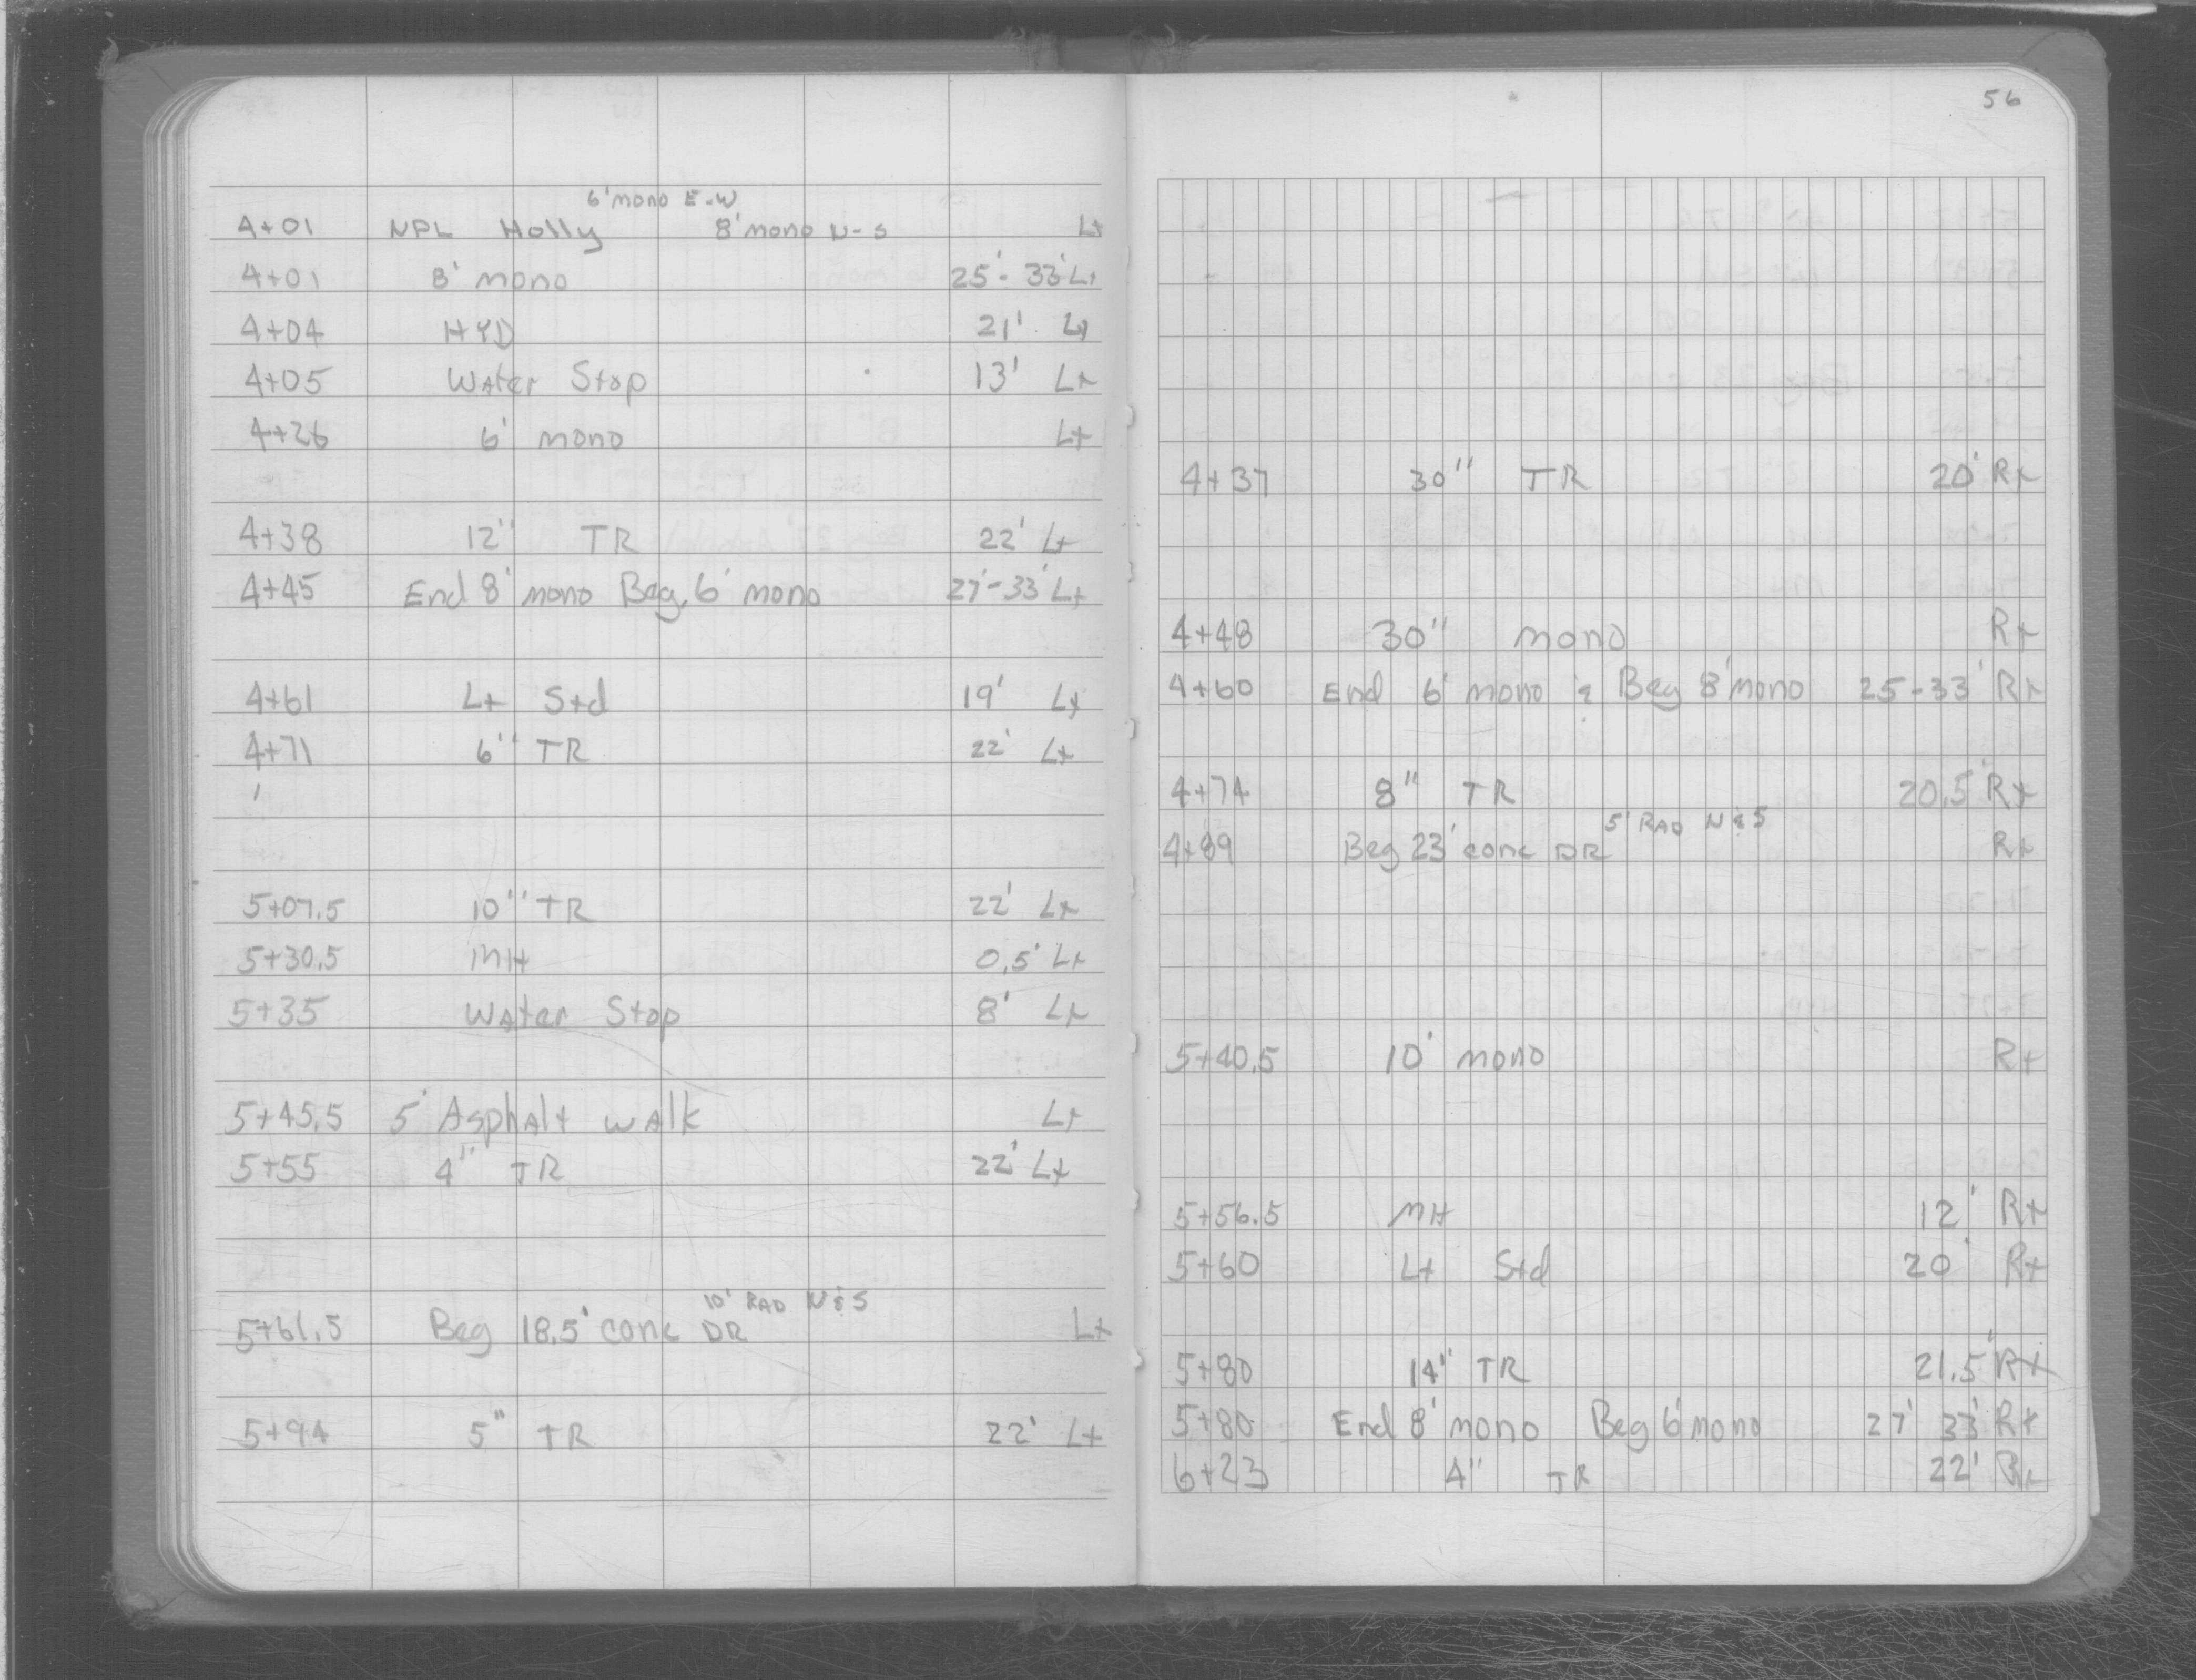 6' mono E-W
4+01 NPL Holly 8' mono N-S Lt
4+01 8' mono 25'-33' Lt
4+04 HYD 21' Lt
4+05 Water Stop 13' Lt
4+26 6' mono Lt
4+38 12" TR 22' Lt
4+45 End 8' mono Beg. 6' mono 27'-33' Lt
4+61 Lt Std 19' Lt
4+71 6" TR 22' Lt
5+07.5 10" TR 22' Lt
5+30.5 MH 0.5' Lt
5+35 Water Stop 8' Lt
5+45.5 5' Asphalt walk Lt
5+55 4" TR 22' Lt
10' RAD N & S
5+61.5 Beg 18.5' conc DR Lt
5+94 5" TR 22' Lt
56
4+37 30" TR 20' Rt
4+48 30" mono Rt
4+60 End 6' mono & Beg 8' mono 25-33' Rt
4+74 8" TR 20.5' Rt
5' RAD N & S
4+89 Beg 23' conc DR Rt
5+40.5 10' mono Rt
5+56.5 MH 12' Rt
5+60 Lt Std 20' Rt
5+80 14" TR 21.5' Rt
5+80 End 8' mono Beg 6' mono 27' 33' Rt
6+23 4" TR 22' Rt